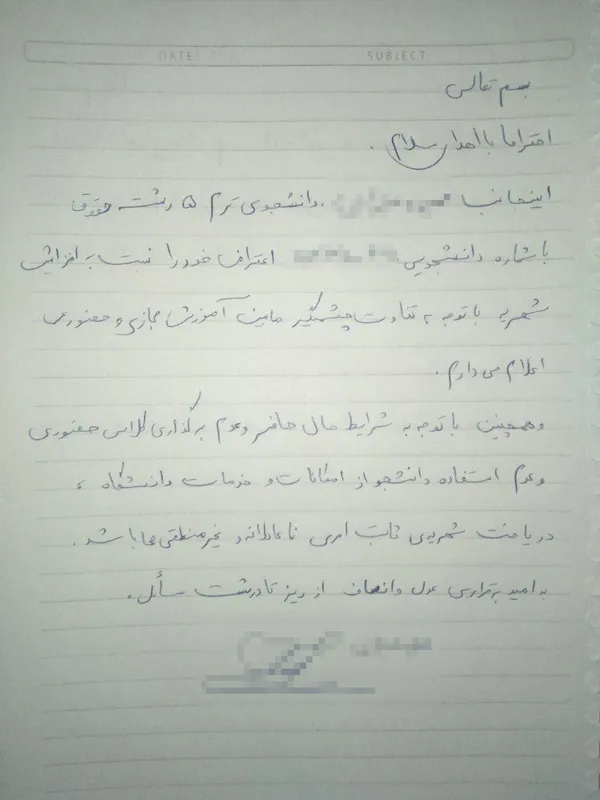 DATE: SUBJECT:
بسم تعالی
احتراما با اهدای سلام .
اینجانب دانشجوی ترم ۵ رشته حقوق
با شماره دانشجویی اعتراض خود را نسبت به افزایش
شهریه با توجه به تفاوت چشمگیر مابین آموزش مجازی و حضوری
اعلام می دارم .
و همچنین با توجه به شرایط حال حاضر و عدم برگذاری کلاس حضوری
و عدم استفاده دانشجو از امکانات و خدمات دانشگاه ،
دریافت شهریه‌ی ثابت امری ناعادلانه و غیر منطقی می باشد .
به امید برقراری عدل و انصاف از ریز تا درشت مسائل .